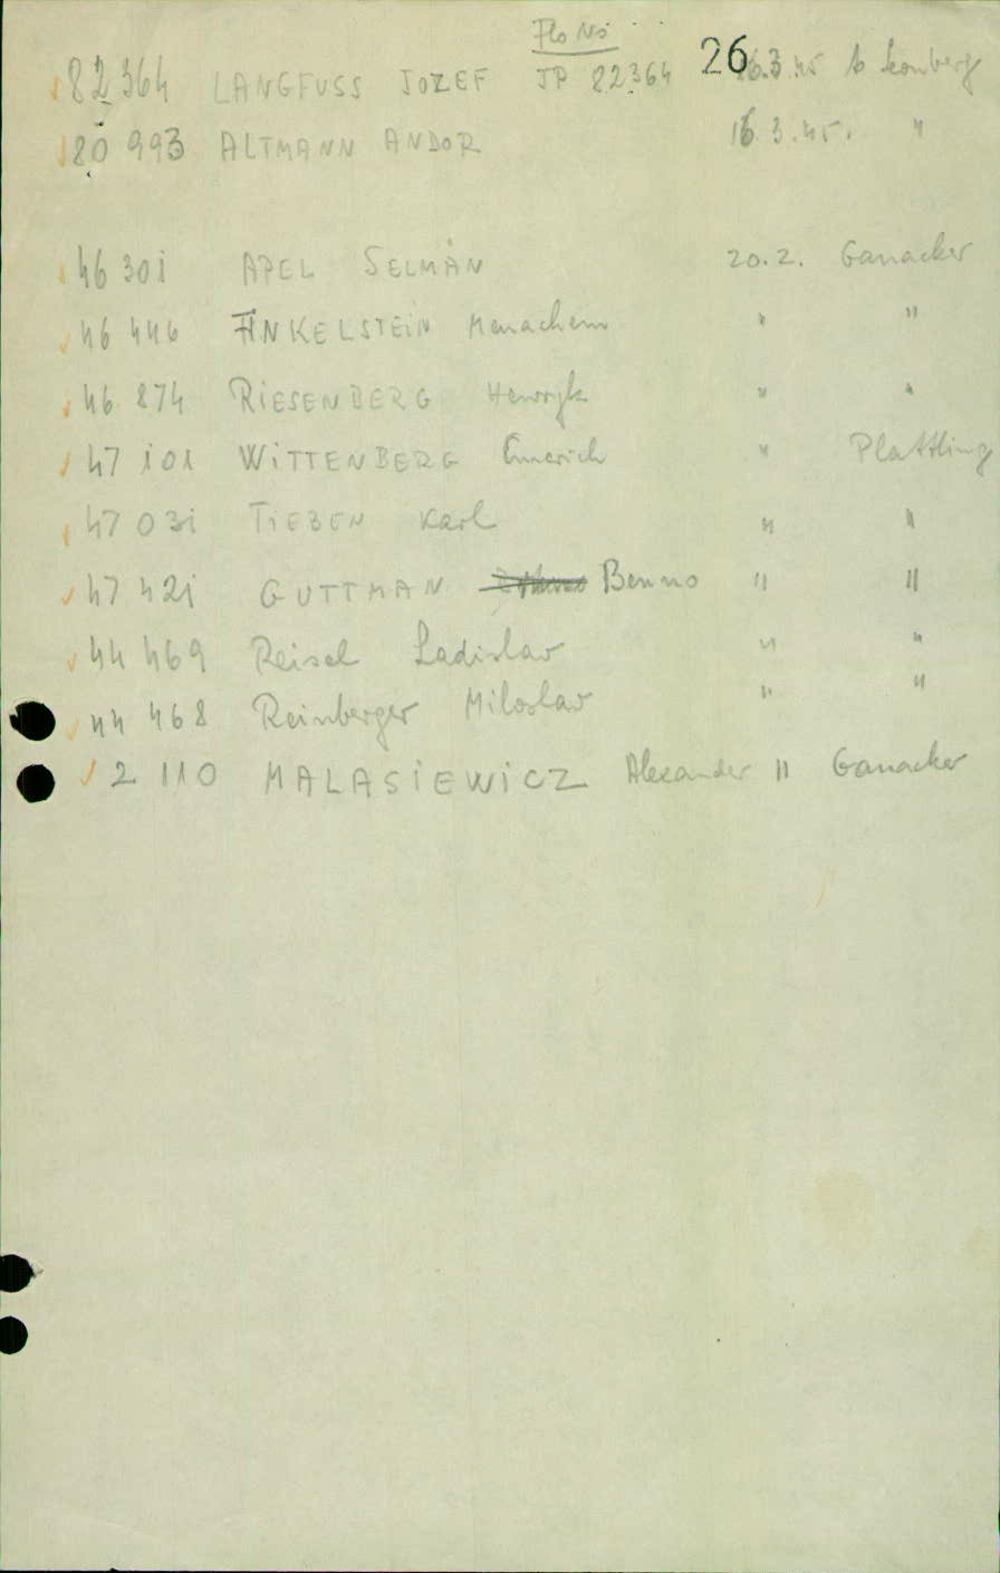 Flo No
82 364 LANGFUSS JOZEF JP 82364 26 16.3.45 Leonberg
80 993 ALTMANN ANDOR 16.3.45. "
46 301 APEL SELMAN 20.2. Ganacker
46 446 FINKELSTEIN Menachem " "
46 874 RIESENBERG Henryk " "
47 101 WITTENBERG Emerich " Plattling
47 031 TIEBEN Karl " "
47 421 GUTTMAN Benno " "
44 469 Reisel Ladislav " "
44 468 Reinberger Miloslav " "
2 110 MALASIEWICZ Alexander " Ganacker